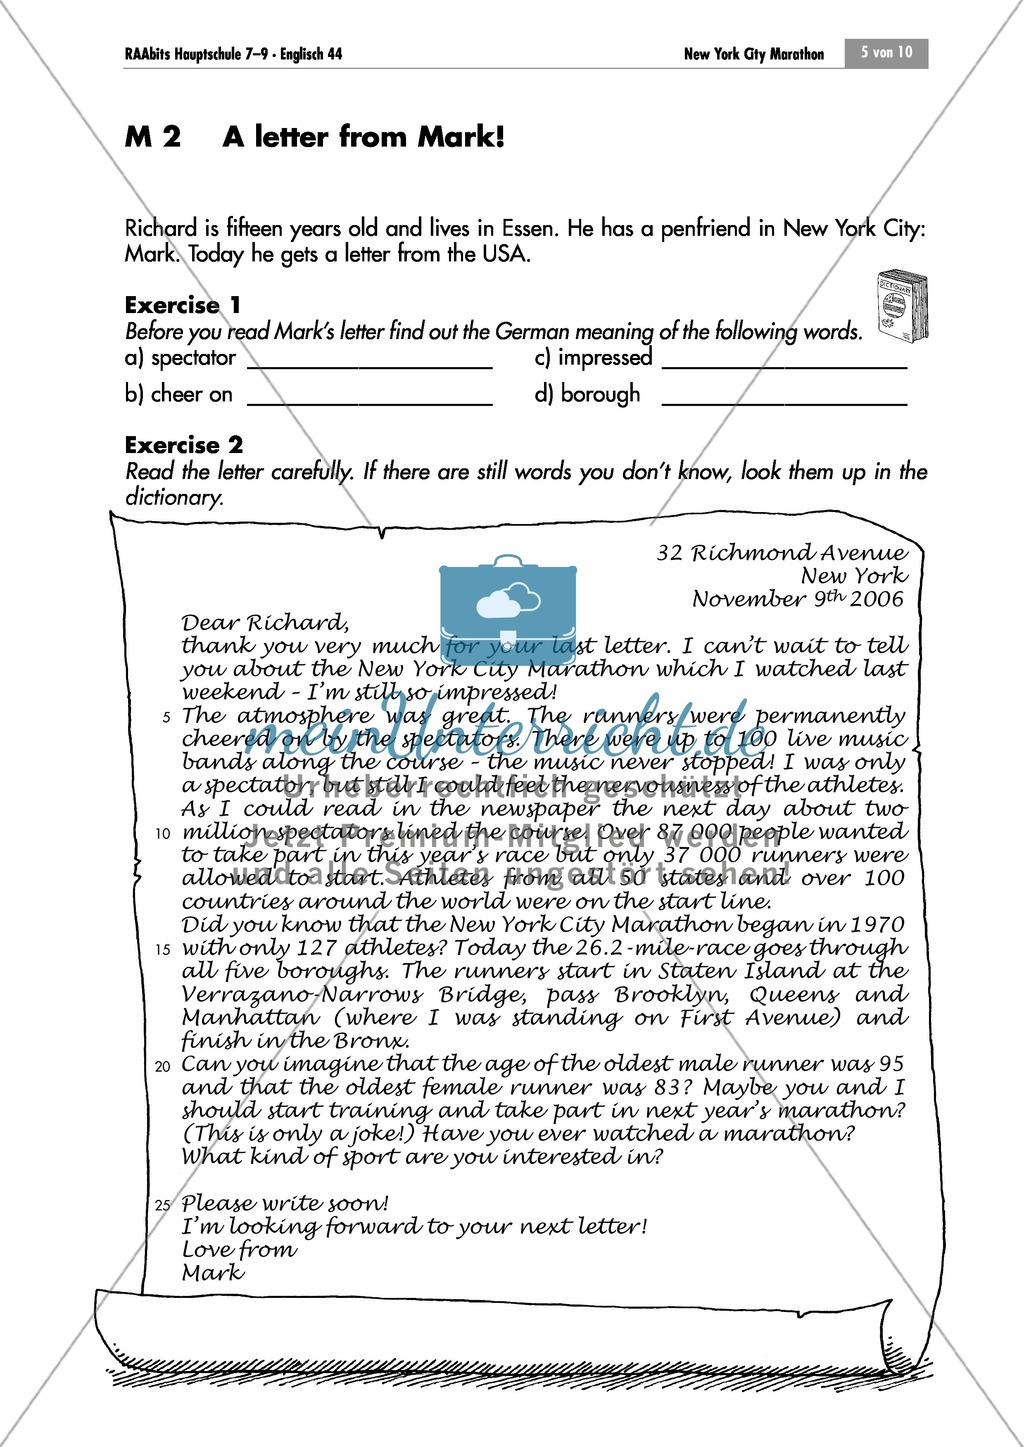 RAAbits Hauptschule 7–9 · Englisch 44 New York City Marathon 5 von 10
M 2 A letter from Mark!
Richard is fifteen years old and lives in Essen. He has a penfriend in New York City:
Mark. Today he gets a letter from the USA.
DICTIONARY
Exercise 1
Before you read Mark's letter find out the German meaning of the following words.
a) spectator ____________ c) impressed ____________
b) cheer on ____________ d) borough ____________
Exercise 2
Read the letter carefully. If there are still words you don't know, look them up in the
dictionary.
32 Richmond Avenue
New York
November 9th 2006
Dear Richard,
thank you very much for your last letter. I can't wait to tell
you about the New York City Marathon which I watched last
weekend – I'm still so impressed!
5 The atmosphere was great. The runners were permanently
cheered on by the spectators. There were up to 100 live music
bands along the course – the music never stopped! I was only
a spectator, but still I could feel the nervousness of the athletes.
As I could read in the newspaper the next day about two
10 million spectators lined the course. Over 87 000 people wanted
to take part in this year's race but only 37 000 runners were
allowed to start. Athletes from all 50 states and over 100
countries around the world were on the start line.
Did you know that the New York City Marathon began in 1970
15 with only 127 athletes? Today the 26.2-mile-race goes through
all five boroughs. The runners start in Staten Island at the
Verrazano-Narrows Bridge, pass Brooklyn, Queens and
Manhattan (where I was standing on First Avenue) and
finish in the Bronx.
20 Can you imagine that the age of the oldest male runner was 95
and that the oldest female runner was 83? Maybe you and I
should start training and take part in next year's marathon?
(This is only a joke!) Have you ever watched a marathon?
What kind of sport are you interested in?
25 Please write soon!
I'm looking forward to your next letter!
Love from
Mark
meinUnterricht.de
Urheberrechtlich geschützt
Jetzt Premium-Mitglied werden
und alle Seiten ungestört sehen!